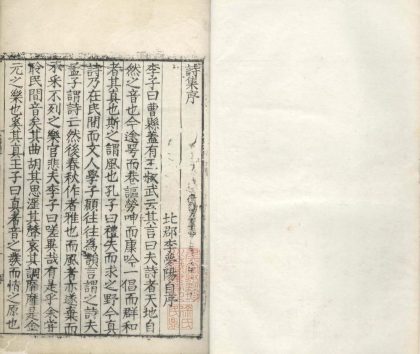 詩集序
北郡李夢陽自序
李子曰曹縣蓋有王叔武云其言曰夫詩者天地自
然之音也今途咢而巷謳勞呻而康吟一倡而群和
者其真也斯之謂風也孔子曰禮失而求之野今真
詩乃在民間而文人學子顧往往為韻言謂之詩夫
孟子謂詩亡然後春秋作者雅也而風者亦遂棄而
不采不列之樂官悲夫李子曰嗟異哉有是乎余嘗
聆民間音矣其曲胡其思淫其聲哀其調靡靡是金
元之樂也奚其真王子曰真者音之發而情之原也